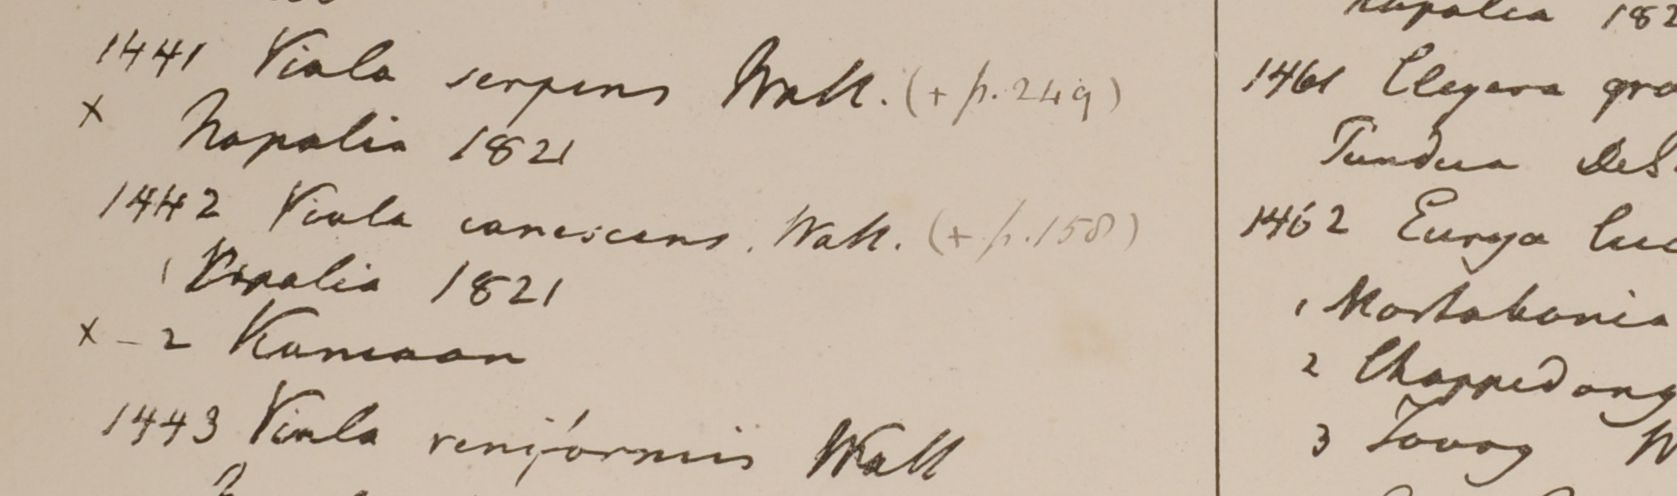 1441 Viola serpens Wall. (+ p. 249)
x Napalia 1821
1442 Viola canescens. Wall. (+ p. 158)
1 Napalia 1821
x - 2 Kamaon
1443 Viola reniformis Wall
Napalia 182
1461 Cleyera gra
Tundua DeS.
1462 Eurya luc
1 Mortabania
2 Chappedong
3 Tavoy W